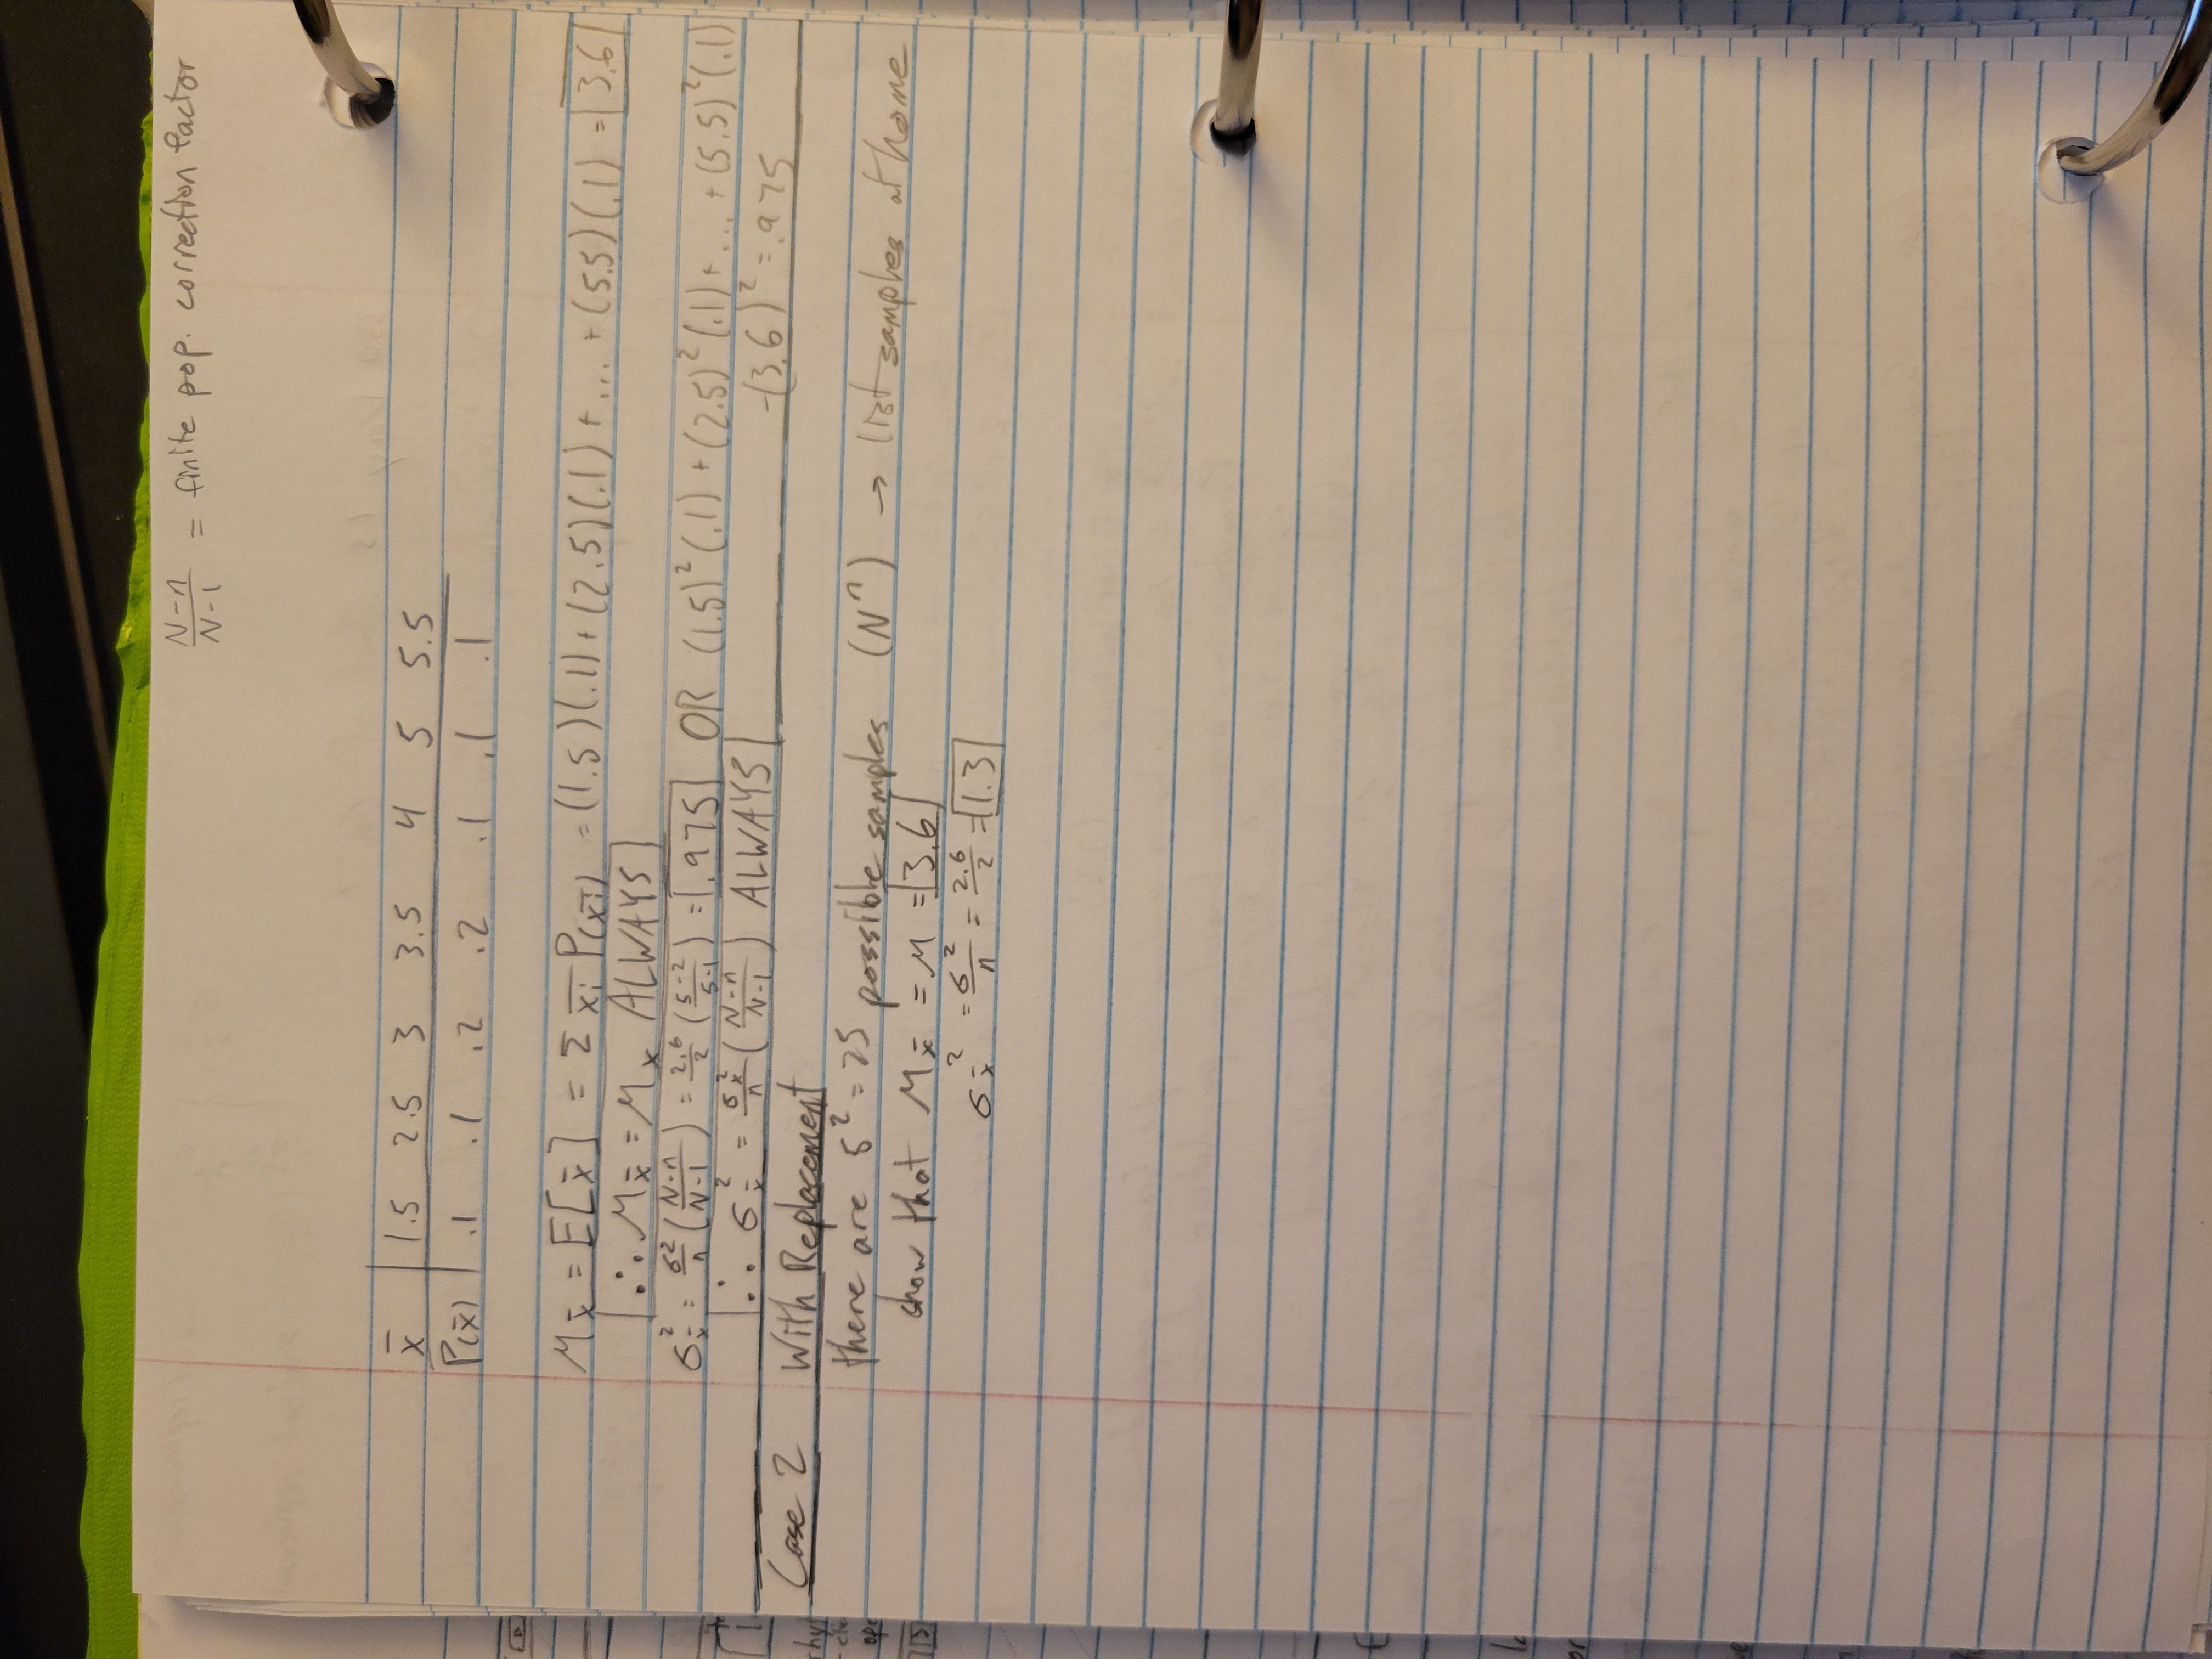 N-n/N-1 = finite pop. correction factor
x̄ | 1.5 2.5 3 3.5 4 5 5.5
P(x̄) | .1 .1 .2 .2 .1 .1 .1
μx̄ = E[x̄] = Σ x̄i P(x̄i) = (1.5)(.1) + (2.5)(.1) + ... + (5.5)(.1) = 3.6
∴ μx̄ = μx ALWAYS
σx̄² = σ²/n (N-n/N-1) = 2.6/2 (5-2/5-1) = .975 OR (1.5)²(.1) + (2.5)²(.1) + ... + (5.5)²(.1)
∴ σx̄² = σx²/n (N-n/N-1) ALWAYS -(3.6)² = .975
Case 2 With Replacement
there are 5² = 25 possible samples (Nⁿ) → list samples at home
show that μx̄ = μ = 3.6
σx̄² = σ²/n = 2.6/2 = 1.3